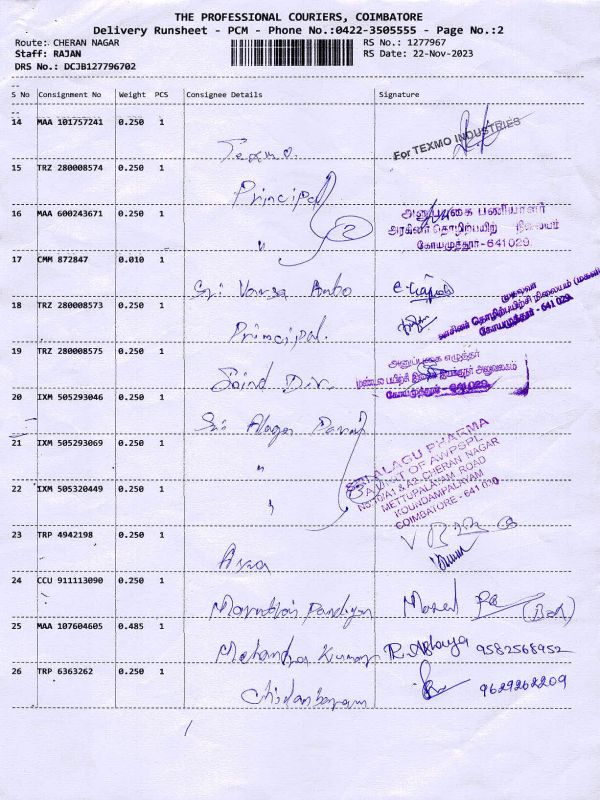 THE PROFESSIONAL COURIERS, COIMBATORE
Delivery Runsheet - PCM - Phone No.:0422-3505555 - Page No.:2
Route: CHERAN NAGAR
RS No.: 1277967
Staff: RAJAN
RS Date: 22-Nov-2023
DRS No.: DCJB127796702
S No Consignment No Weight PCS Consignee Details Signature
14 MAA 101757241 0.250 1
For TEXMO INDUSTRIES
Texmo.
15 TRZ 280008574 0.250 1
Principal
16 MAA 600243671 0.250 1
2
அனுப்புகை பணியாளர்
அரசினர் தொழிற்பயிற்சி நிலையம்
கோயமுத்தூர் - 641 029.
"
17 CMM 872847 0.010 1
Sri Vansa Anbo
18 TRZ 280008573 0.250 1
முதல்வர்
கோயமுத்தூர் - 641 029.
Principal.
19 TRZ 280008575 0.250 1
அனுப்புகை எழுத்தர்
மண்டல பயிற்சி இணை இயக்குநர் அலுவலகம்
கோயமுத்தூர் - 641029.
Joind Dir
20 IXM 505293046 0.250 1
Sri Alagu
21 IXM 505293069 0.250 1
"
22 IXM 505320449 0.250 1
3
SRI ALAGU PHARMA
A UNIT OF AWPSPL
METTUPALAYAM ROAD
KOUNDAMPALAYAM
COIMBATORE - 641 030
"
23 TRP 4942198 0.250 1
24 CCU 911113090 0.250 1
Pandiyan
25 MAA 107604605 0.485 1
Mahendra Kumar
9582568952
26 TRP 6363262 0.250 1
Chidambaram
9629262209